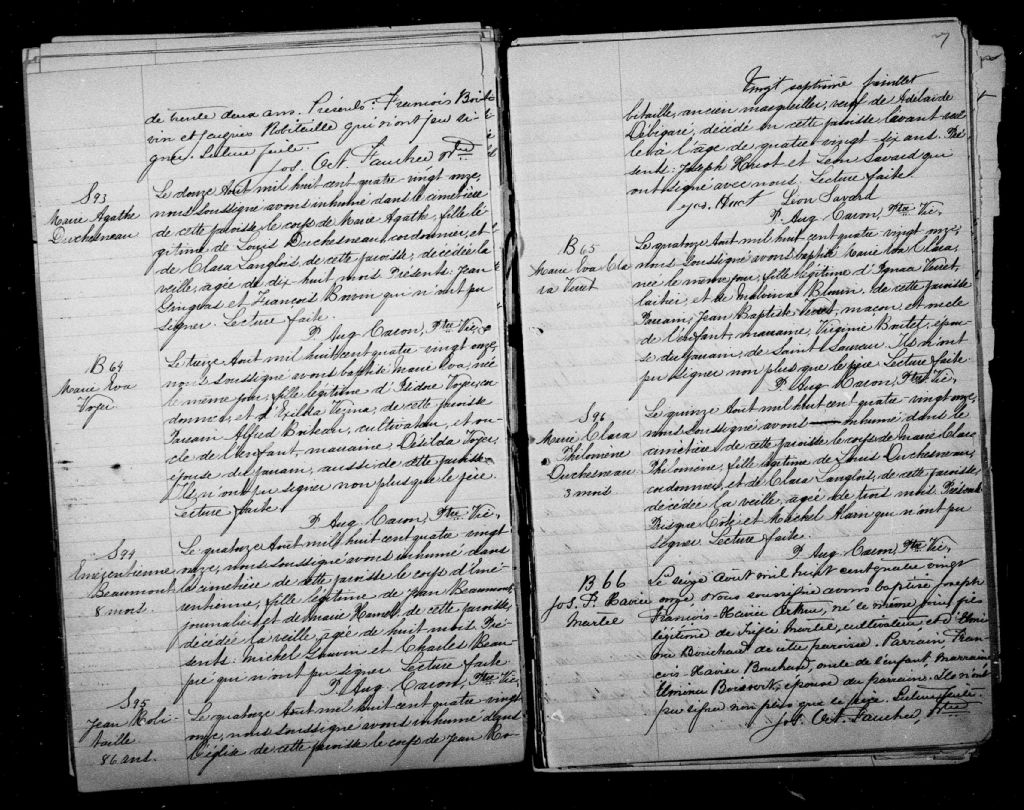 de trente deux ans. Présents: François Boi-
vin et Jacques Robitaille qui n'ont pu si-
gner. Lecture faite.
Jos. Oct. Faucher Ptre
S93
Marie Agathe
Duchesneau
Le douze Aout mil huit cent quatre-vingt onze,
nous soussigné avons inhumé dans le cimetière
de cette paroisse le corps de Marie Agathe, fille lé
gitime de Louis Duchesneau, cordonnier, et
de Clara Langlois, de cette paroisse, décédée la
veille, agée de dix huit mois. Présents: Jean
Gingras et François Boivin qui n'ont pu
signer. Lecture faite.
P. Aug. Caron, Ptre Vic,
B64
Marie Eva
Voyer
Le treize Aout mil huit cent quatre-vingt onze,
nous soussigné avons baptisé Marie Eva, née
le même jour, fille légitime d'Isidore Voyer, cor
donnier, et d'Exilda Vezina, de cette paroisse
Parrain Alfred Boiteau, cultivateur, et on-
cle de l'enfant, marraine, Odilda Voyer,
épouse du parrain, aussi de cette paroisse.
Ils n'ont pu signer non plus que le père.
Lecture faite
P. Aug. Caron, Ptre Vic,
S94
Emérentienne
Beaumont
8 mois.
Le quatorze Aout mil huit cent quatre vingt
onze, nous soussigné avons inhumé dans
le cimetière de cette paroisse le corps d'Emé-
rentienne, fille légitime de Jean Beaumont,
journalier et de Marie Hamel de cette paroisse,
décédée la veille, agée de huit mois. Pré-
sents: Michel Gauvin et Charles Beau-
pré qui n'ont pu signer Lecture faite
P. Aug. Caron, Ptre Vic,
S95
Jean Robi-
taille
86 ans.
Le quatorze Aout mil huit cent quatre vingt
onze, nous soussigné avons inhumé dans
l'église de cette paroisse le corps de Jean Ro-
7
Vingt septième feuillet
bitaille, ancien marguiller, veuf de Adelaide
Bibigare, décédé en cette paroisse l'avant veil
le à l'âge de quatre-vingt-six ans. Pré
sents: Joseph Huot et Léon Savard qui
ont signé avec nous. Lecture faite
Jos. Huot Léon Savard
P. Aug. Caron, Ptre Vic,
B65
Marie Eva Cla
ra Verret
Le quatorze Aout mil huit cent quatre vingt onze,
nous soussigné avons baptisé Marie Eva Clara,
née le même jour, fille légitime d'Ignace Verret,
laitier, et de Malvina Blouin, de cette paroisse
Parrain, Jean Baptiste Verret, maçon et oncle
de l'enfant, marraine, Virginie Boitel, épou-
se du parrain, de Saint Sauveur. Ils n'ont
pu signer non plus que le père Lecture faite.
P. Aug. Caron, Ptre Vic,
S96
Marie Clara
Philomène
Duchesneau
3 mois
Le quinze Aout mil huit cent quatre-vingt onze,
nous soussigné avons inhumé dans le
cimetière de cette paroisse le corps de Marie Clara
Philomène, fille légitime de Louis Duchesneau,
cordonnier, et de Clara Langlois, de cette paroisse,
décédée la veille, agée de trois mois. Présents
Prisque Coté et Michel Alarn qui n'ont pu
signer Lecture faite.
P. Aug. Caron, Ptre Vic,
B66
Jos. F. Xavier
Martel
Le seize Aout mil huit cent quatre vingt
onze, nous soussigné avons baptisé Joseph
François-Xavier Arthur, né le même jour, fils
légitime de Trefflé Martel, cultivateur et d'Emé
rie Bouchard de cette paroisse. Parrain Fran
cois Xavier Bouchard, oncle de l'enfant, Marraine
épouse du parrain. Ils n'ont
pu signer non plus que le père. Lecture faite.
Jos. Oct. Faucher, Ptre